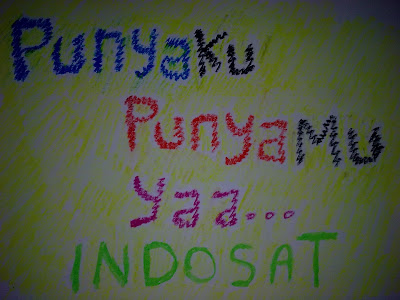 PunyaKu
PunyaMU
yaa...
INDOSAT